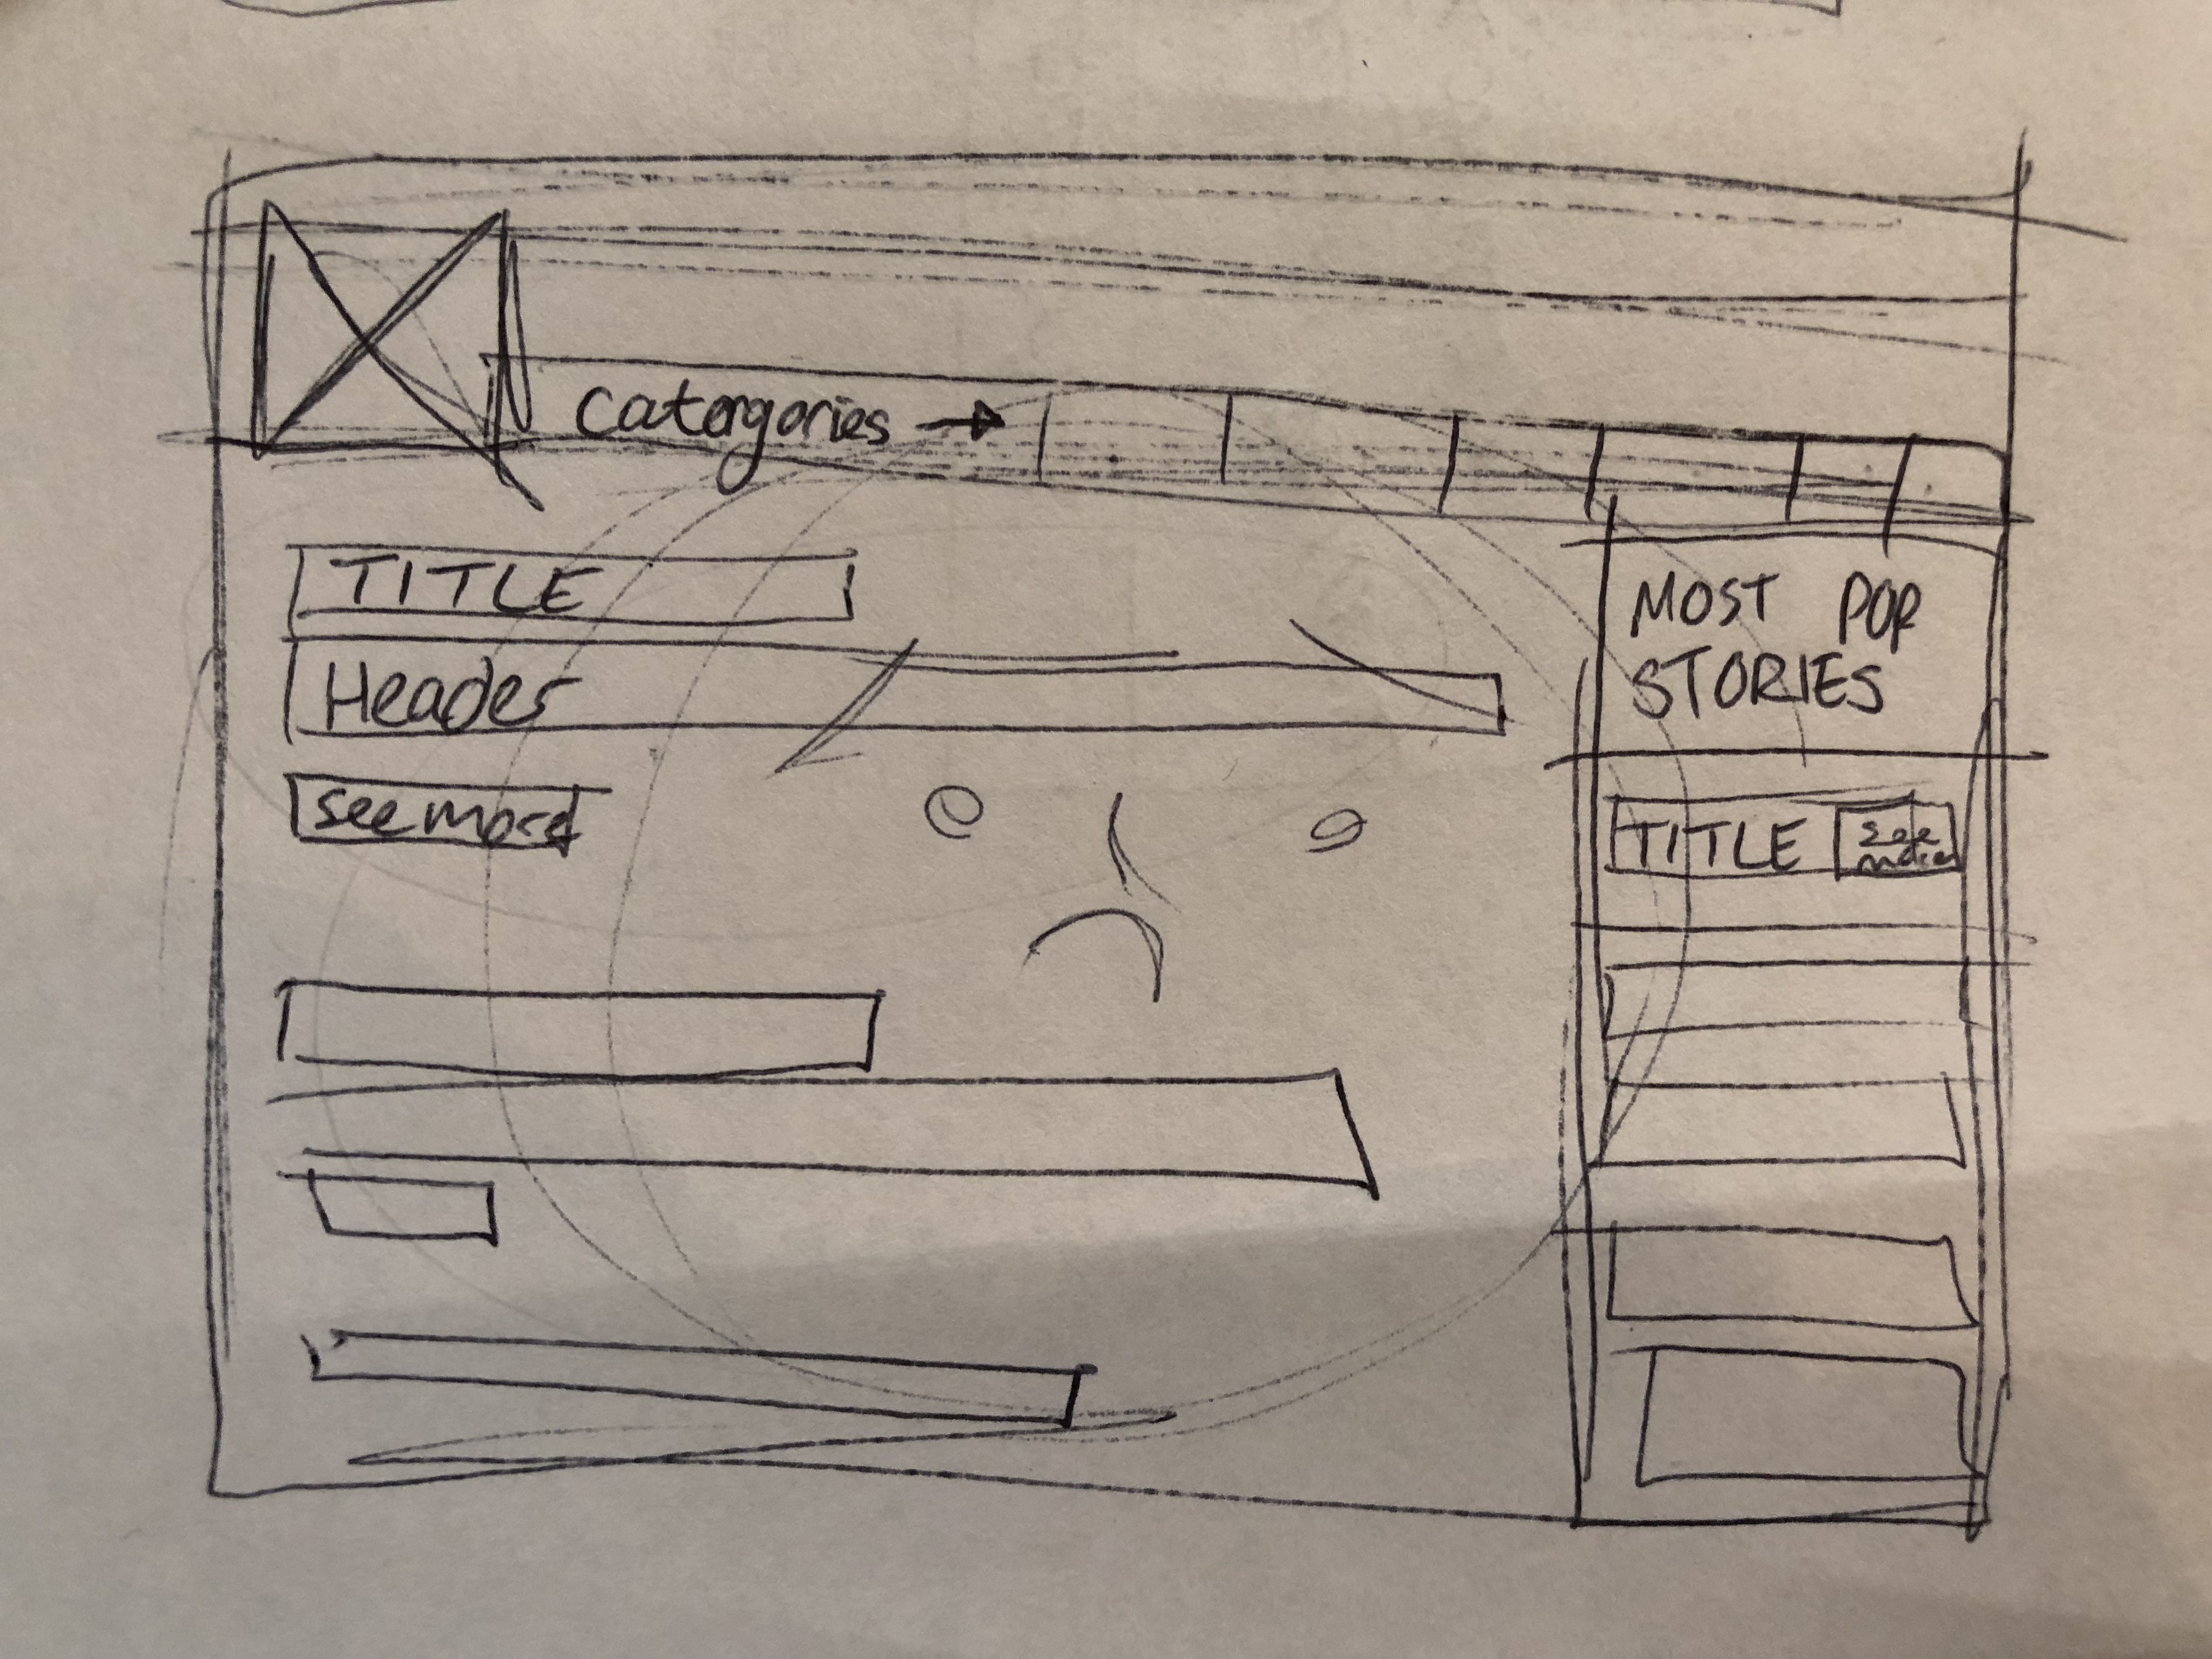 Catorgories →
TITLE
Header
see more
MOST POP
STORIES
TITLE
see
more